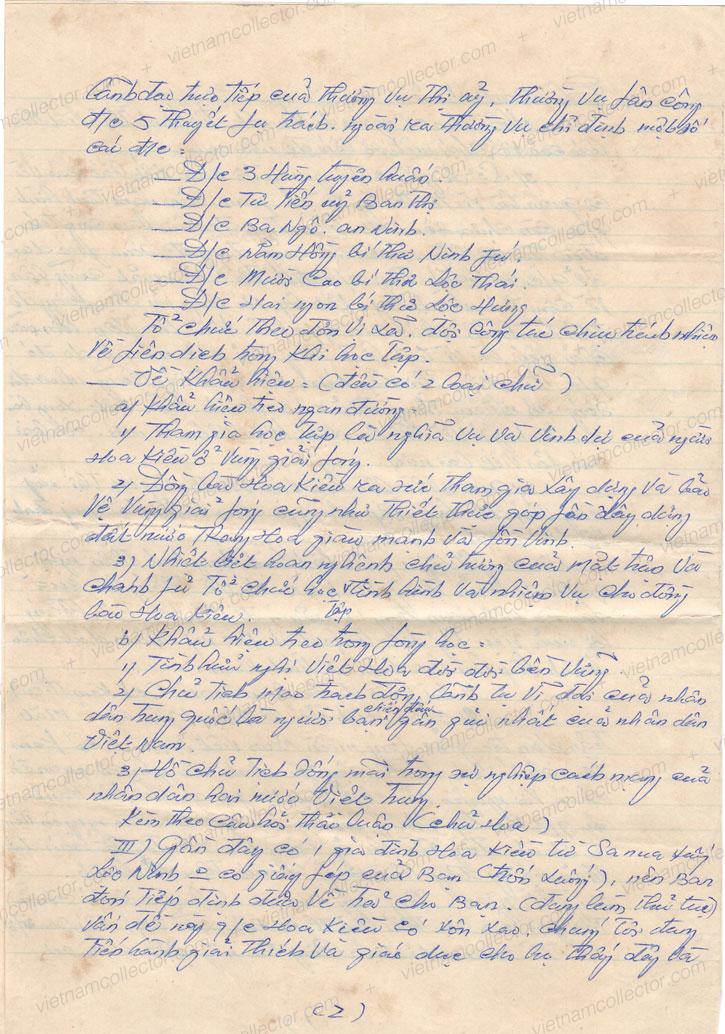 lãnh đạo trực tiếp của thường vụ thị ủy, thường vụ phân công
đ/c 5 Thuyết phụ trách. ngoài ra thường vụ chỉ định một số
các đ/c =
— Đ/c 3 Hùng tuyên huấn
— Đ/c Tư Tiến uỷ Ban thị
— Đ/c Ba Ngô. an Ninh.
— Đ/c năm Hồng bí thư Ninh Phú
— Đ/c Mười Cao bí thư Lộc Thái.
— Đ/c Hai ngon bí thư Lộc Hưng
Tổ chức theo đơn vị xã. đội công tác chịu trách nhiệm
về phiên dịch trong khi học tập.
— Về khẩu hiệu = (đều có 2 loại chữ)
a/ Khẩu hiệu treo ngan đường.
1/ Tham gia học tập là nghĩa vụ và vinh dự của người
Hoa Kiều ở vùng giải fóng.
2/ Đồng bào Hoa Kiều ra sức tham gia xây dựng và bảo
vệ vùng giải fóng cũng như thiết thực góp fần xây dựng
đất nước Trung Hoa giàu mạnh và fồn vinh.
3/ Nhiệt liệt hoan nghênh chủ trương của Mặt trận và
chánh fủ Tổ chức học tập tình hình và nhiệm vụ cho đồng
bào Hoa Kiều.
b/ Khẩu hiệu treo trong fòng học =
1/ Tình hữu nghị Việt Hoa đời đời bền vững.
2/ Chủ tịch Mao trạch đông, lãnh tụ vĩ đại của nhân
dân trung quốc là người bạn chiến đấu gần gũi nhất của nhân dân
Việt Nam.
3/ Hồ chủ tịch sống mãi trong sự nghiệp cách mạng của
nhân dân hai nước Việt trung.
Kèm theo câu hỏi thảo luận (chữ Hoa)
III/ Gần đây có 1 gia đình Hoa Kiều từ Sanua xuống
Lộc Ninh có giấy fép của Bạn (trốn xuống), nên Ban
đón tiếp định đưa về trả cho Bạn. (đang làm thủ tục)
vấn đề này g/c Hoa Kiều có xôn xao. chúng tôi đang
tiến hành giải thích và giáo dục cho họ thấy đây là
(2)
vietnamcollector.com